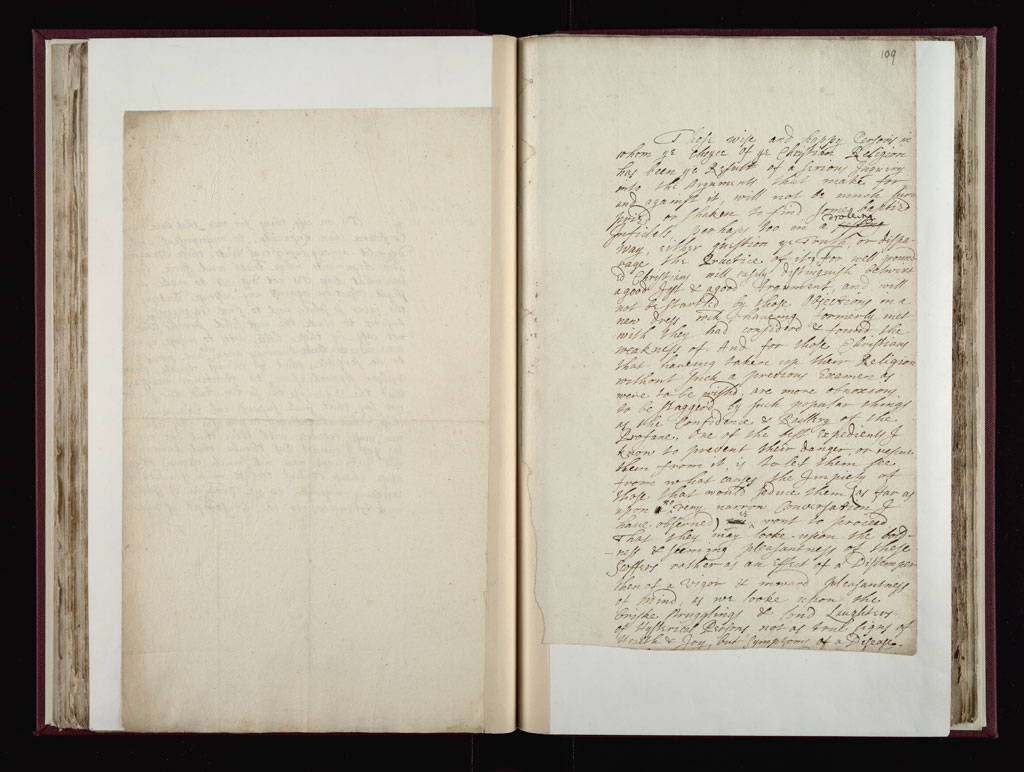 109
Those wise and happy Persons in
whom ye Choyce of ye Christian Religion
has been ye Result of a serious Inquiry
into the Arguments that make for
and against it, will not be much sur-
priz'd or shaken to find some baptized
Infidels, perhaps too in a droleing
way, either question ye Truth, or dispa-
rage the Practice of it; for well ground-
ed Christians will easily distinguish betwixt
a good Jest & a good Argument, and will
not be startled by those Objections in a
new dress, wch haveing formerly met
with they had considerd & found the
weakness of. And for those Christians
that haveing taken up their Religion
without such a previous Examen as
were to be wishd, are more obnoxious
to be staggerd by such popular things
as the Confidence & Raillery of the
Profane, One of the best Expedients I
know to prevent their danger or rescue
them from it, is to let them see
from what causes the Impiety of
those that would seduce them (as far as
upon no very narrow Conversation I
have observed) is wont to proceed
That they may looke upon the bold-
ness & seeming pleasantness of these
Scoffers rather as an Effect of a Distemper
then of a Vigor & inward pleasantness
of mind as we looke upon the
briske struglings & loud Laughters
of Hysterical Persons not as true signs of
Health & Joy, but Symptoms of a Disease.